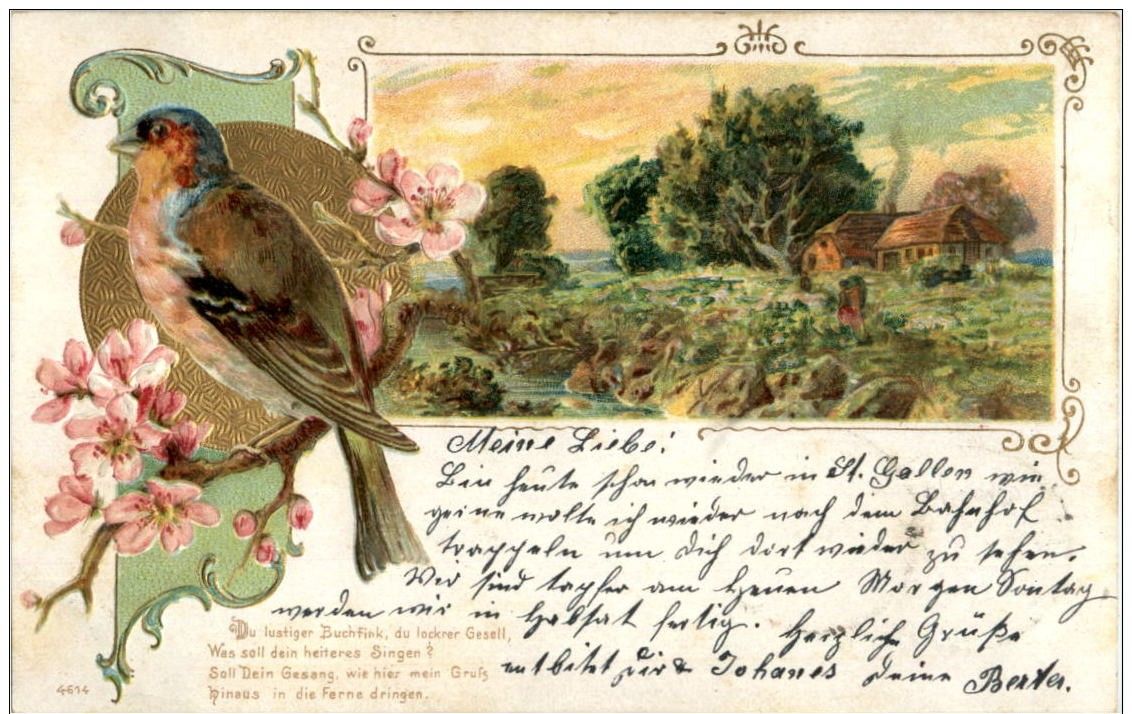 Meine Liebe!
Bin heute schon wieder in St. Gallen wie
geine wolte ich wieder nach dem Bahnhof
trappeln um dich dort wieder zu sehen.
Wir sind tapfer am heuen Morgen Sontag
werden wir in fertig. Herzliche Grüße
entbitet Dir & Johanes deine Berter.
Du lustiger Buchfink, du lockrer Gesell,
Was soll dein heiteres Singen?
Soll Dein Gesang, wie hier mein Gruſs
hinaus in die Ferne dringen.
4614